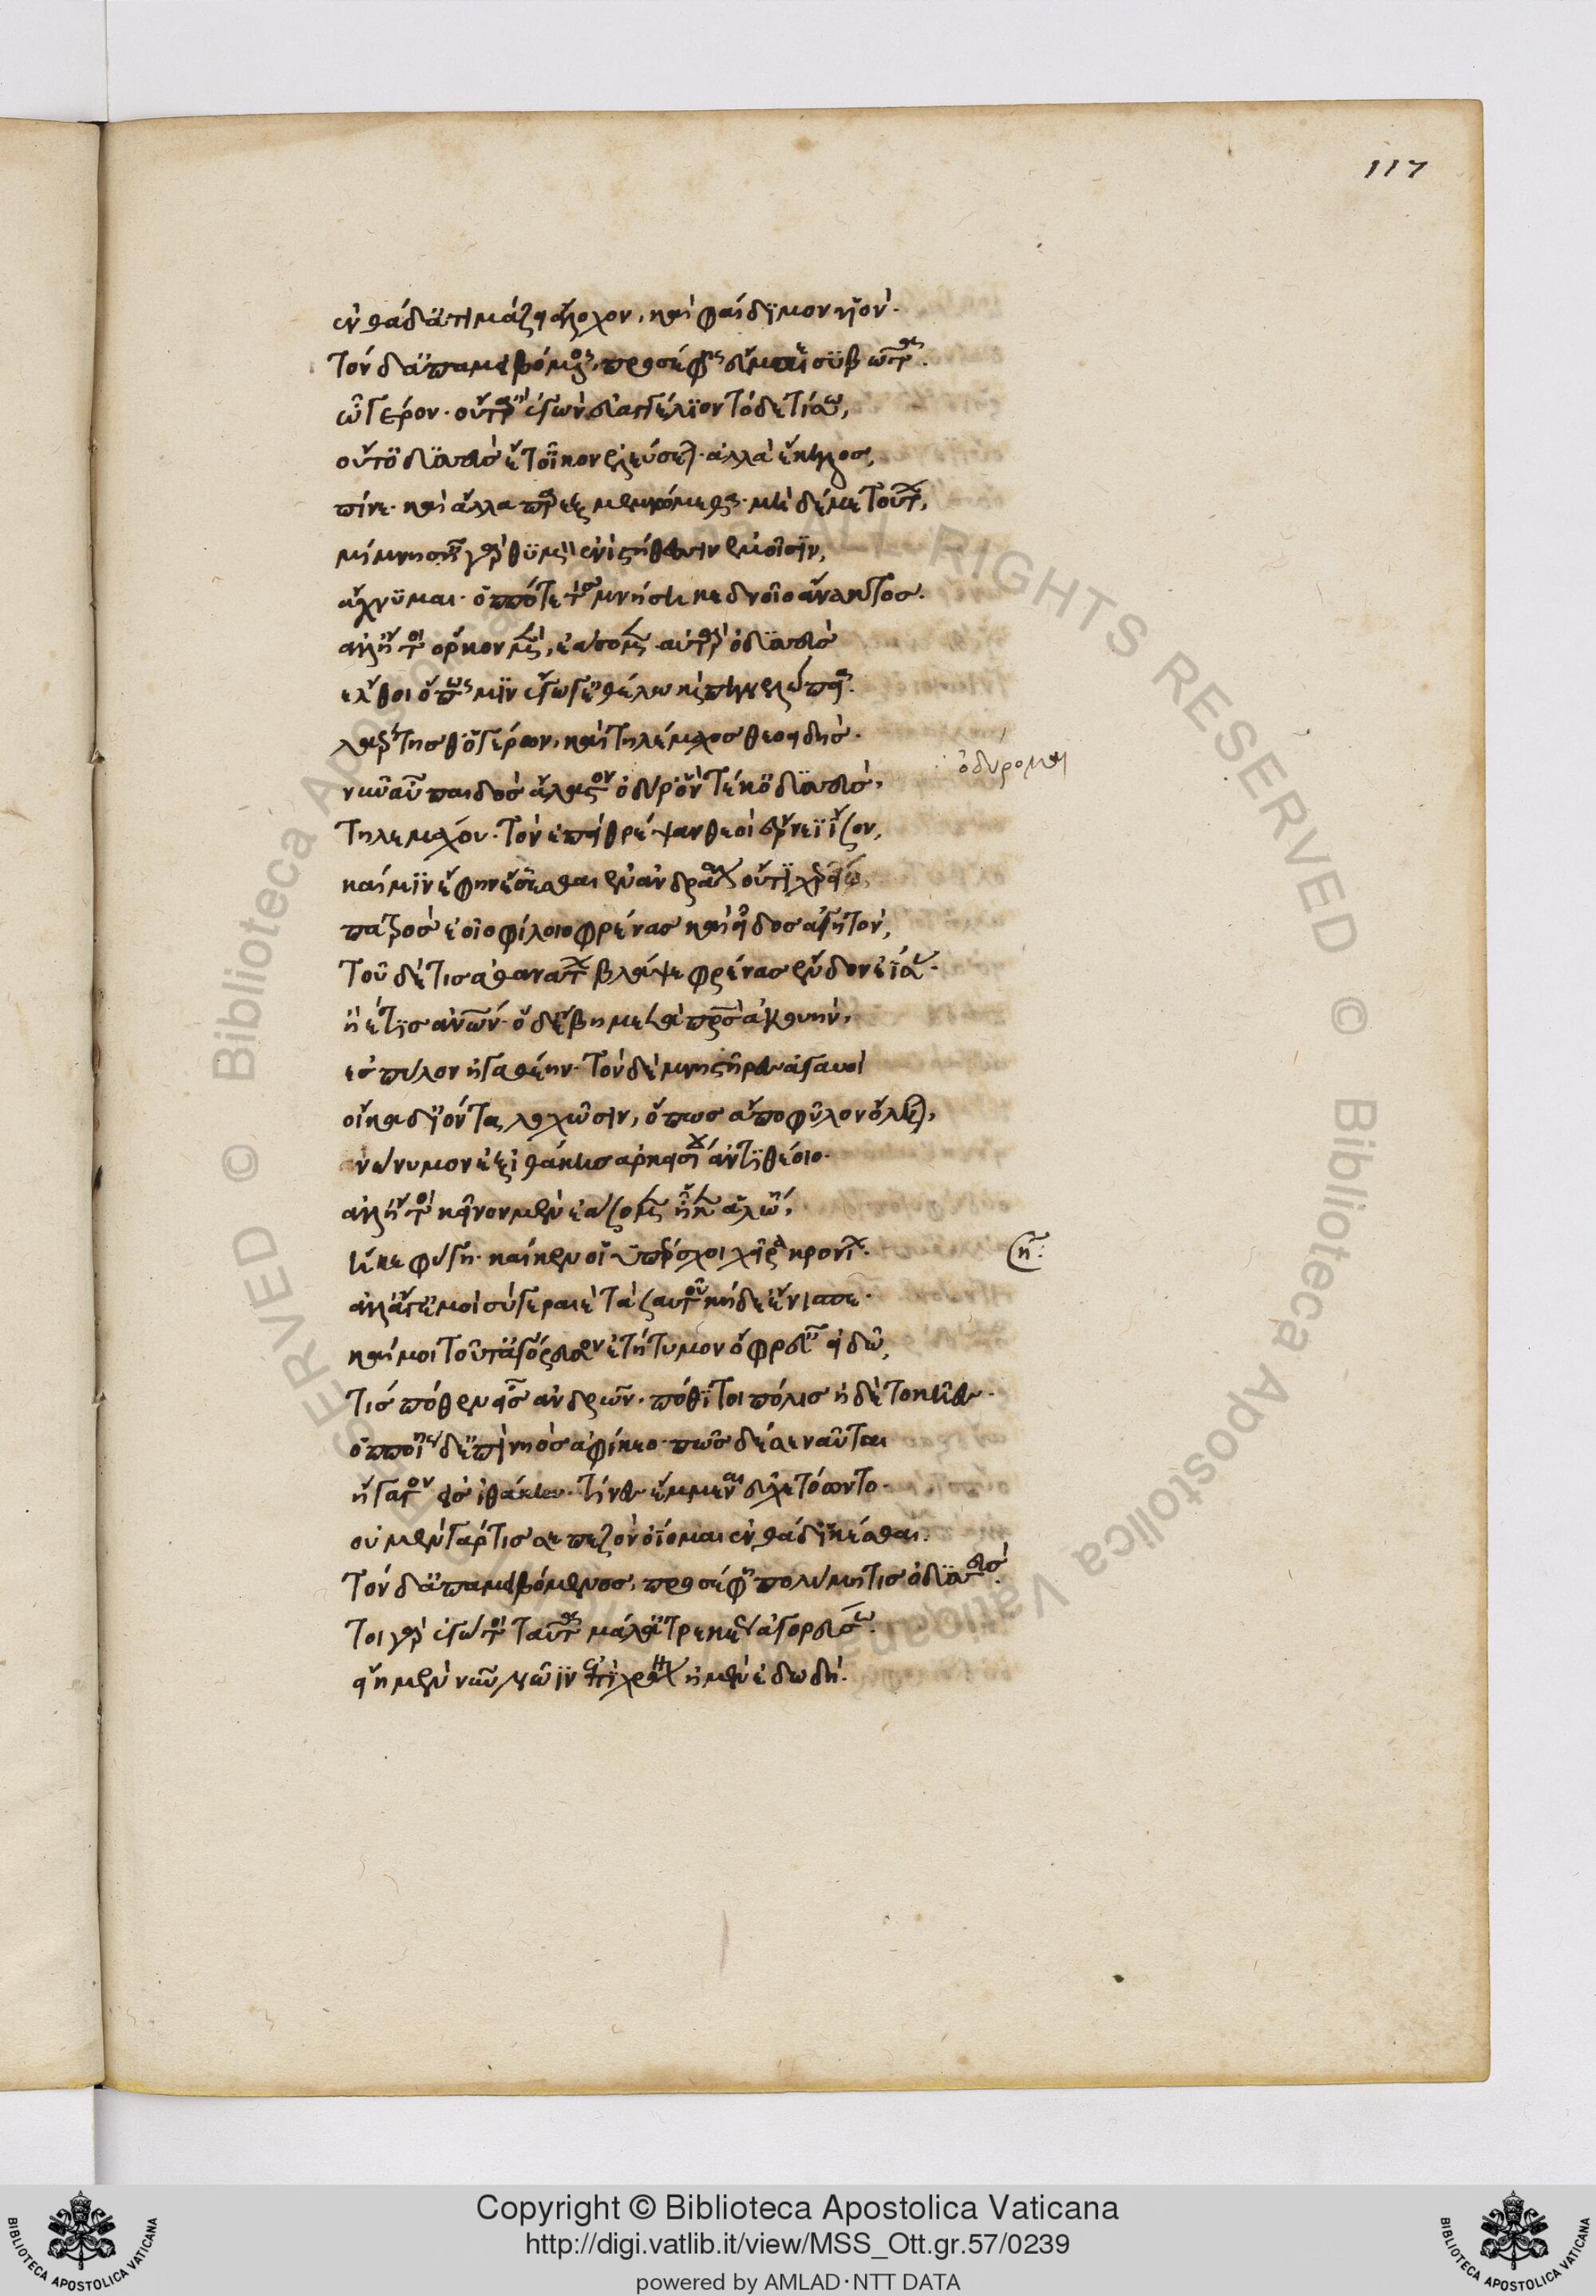 117
ἐνθάδ' ἀτιμάζει ἄλοχον, καὶ φαίδιμον υἱόν.
Τὸν δ' ἀπαμειβόμενος, προσέφης Εὔμαιε συβῶτα.
ὦ γέρον. οὔτ' ἄρ' ἐγὼν εὐαγγέλιον τόδε τίσω,
οὔτ' Ὀδυσσεὺς ἔτ' οἶκον ἐλεύσεται. ἀλλὰ ἕκηλος,
πῖνε. καὶ ἄλλα παρὲξ μεμνώμεθα. μηδέ με τούτων,
μίμνησκ'. ἦ γὰρ θυμὸς ἐνὶ στήθεσσιν ἐμοῖσιν,
ἄχνυται. ὁππότε τις μνήσῃ κεδνοῖο ἄνακτος.
ἀλλ' ἤτοι ὅρκον μὲν, ἐάσομεν. αὐτὰρ Ὀδυσσεὺς
ἔλθοι ὅπως μιν ἔγωγ' ἐθέλω καὶ Πηνελόπεια.
Λαέρτης θ' ὁ γέρων, καὶ Τηλέμαχος θεοειδής.
νῦν αὖ παιδὸς ἄλαστον ὀδύρομ' ὃν τέκ' Ὀδυσσεύς,
Τηλεμάχου. τὸν ἐπεὶ θρέψαν θεοὶ ἔρνεϊ ἶσον,
ὀδύρομαι
καί μιν ἔφην ἔσσεσθαι ἐν ἀνδράσιν οὔτι χέρεια
πατρὸς ἑοῖο φίλοιο φρένας καὶ εἶδος ἀγητόν,
τοῦ δέ τις ἀθανάτων βλάψε φρένας ἔνδον ἐΐσας.
ἠέ τις ἀνθρώπων. ὁ δ' ἔβη μετὰ πατρὸς ἀκουήν,
ἐς Πύλον ἠγαθέην. τὸν δὲ μνηστῆρες ἀγαυοὶ
οἴκαδ' ἰόντα λοχῶσιν, ὅπως ἀπὸ φῦλον ὄληται,
νώνυμον ἐξ Ἰθάκης Ἀρκεισίου ἀντιθέοιο.
ἀλλ' ἤτοι κεῖνον μὲν ἐάσομεν ἤ κεν ἁλώῃ,
ἤ κε φύγῃ. καί κέν οἱ ὑπέρσχοι χεῖρα Κρονίων.
ἀλλ' ἄγε μοι σὺ γεραιὲ τὰ σαυτοῦ κήδε' ἔνισπε.
καί μοι τοῦτ' ἀγόρευσον ἐτήτυμον ὄφρ' εὖ εἰδῶ,
τίς πόθεν εἶς ἀνδρῶν. πόθι τοι πόλις ἠδὲ τοκῆες.
ὁπποίης δ' ἐπὶ νηὸς ἀφίκεο. πῶς δέ σε ναῦται
ἤγαγον εἰς Ἰθάκην. τίνες ἔμμεναι εὐχετόωντο.
οὐ μὲν γάρ τί σε πεζὸν ὀΐομαι ἐνθάδ' ἱκέσθαι.
Τὸν δ' ἀπαμειβόμενος, προσέφη πολύμητις Ὀδυσσεύς.
τοιγὰρ ἐγώ τοι ταῦτα μάλ' ἀτρεκέως ἀγορεύσω.
εἴη μὲν νῦν νῶϊν ἐπὶ χρόνον ἠμὲν ἐδωδή.
Copyright © Biblioteca Apostolica Vaticana
http://digi.vatlib.it/view/MSS_Ott.gr.57/0239
powered by AMLAD·NTT DATA